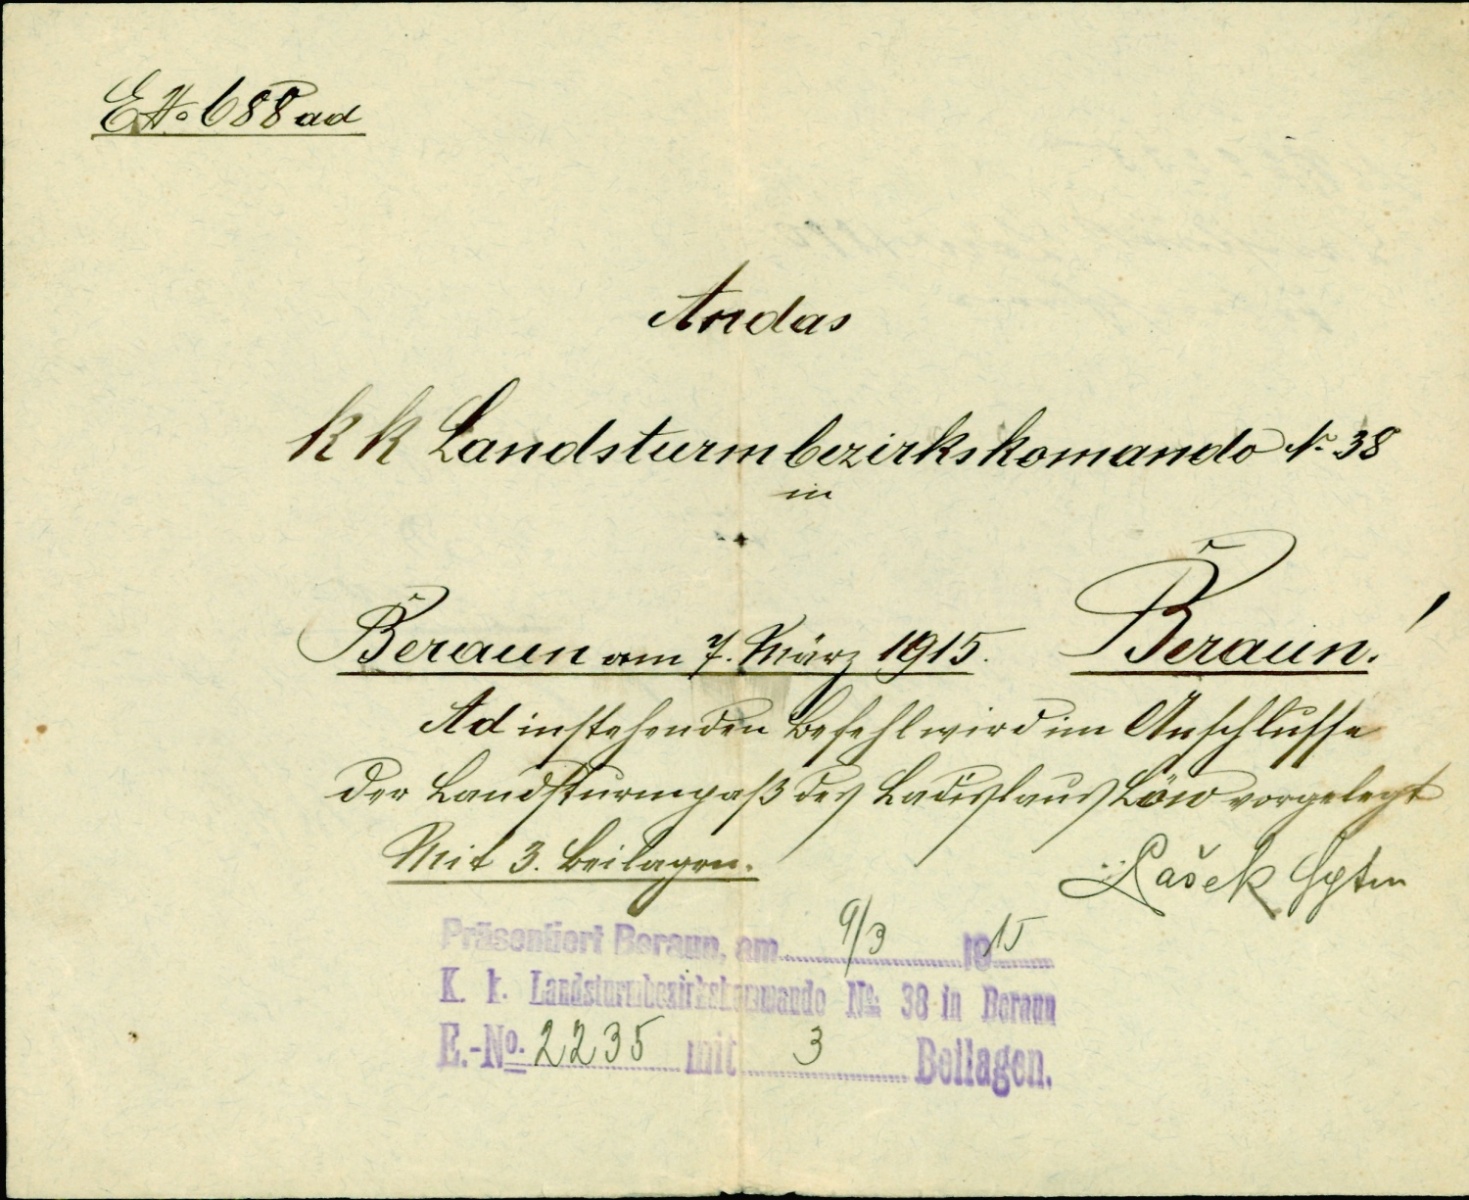 E No 688 ad
An das
k k Landsturmbezirkskomando No 38
in
Beraun am 7. März 1915. Beraun!
Ad instehenden Befehl wird im Anschlusse
der Landsturmpaß des Ladislaus Löw vorgelegt
Mit 3. Beilagen.
Lašek Hptm
Präsentiert Beraun, am 9/3 1915
K. k. Landsturmbezirkskommando No. 38 in Beraun
E.-No. 2235 mit 3 Beilagen.